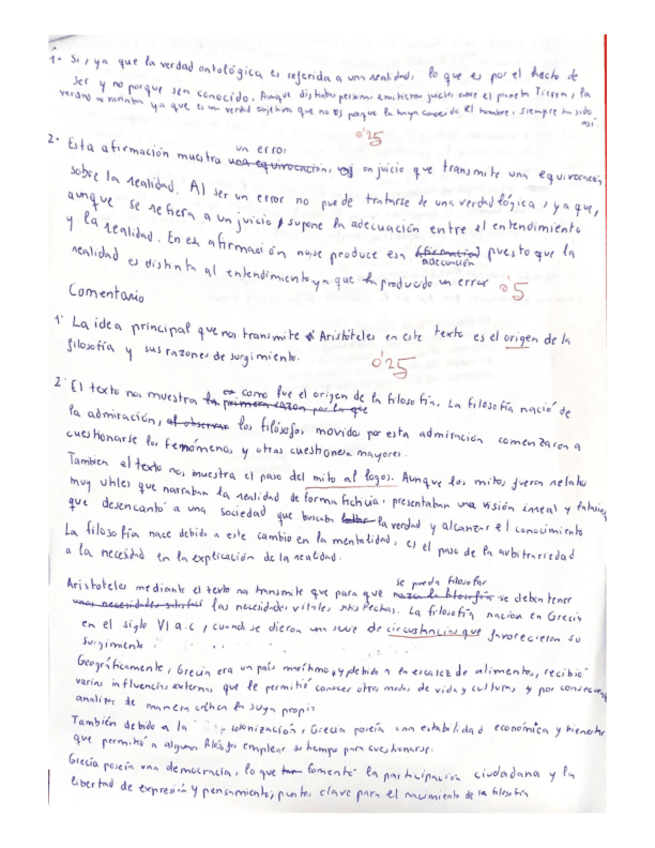 1- Si, ya que la verdad ontológica es referida a una realidad, lo que es por el hecho de
ser y no porque sea conocido. Aunque distintas personas emitieran juicios sobre el planeta Tierra, la
verdad no variaría ya que es una verdad objetiva que no es porque la haya conocido el hombre, siempre ha sido
así.
0'25
2- Esta afirmación muestra un error, un juicio que transmite una equivocación
sobre la realidad. Al ser un error no puede tratarse de una verdad lógica, ya que,
aunque se refiera a un juicio, supone la adecuación entre el entendimiento
y la realidad. En esa afirmación no se produce esa adecuación puesto que la
realidad es distinta al entendimiento ya que ha producido un error
0'5
Comentario
1- La idea principal que nos transmite Aristóteles en este texto es el origen de la
filosofía y sus razones de surgimiento.
0'25
2- El texto nos muestra como fue el origen de la filosofía. La filosofía nació de
la admiración, los filósofos movidos por esta admiración comenzaron a
cuestionarse los fenómenos y otras cuestiones mayores.
Tambien el texto nos muestra el paso del mito al logos. Aunque los mitos fueron relatos
muy utiles que narraban la realidad de forma ficticia, presentaban una visión irreal y
que desencantó a una sociedad que buscaba la verdad y alcanzar el conocimiento
La filosofía nace debido a este cambio en la mentalidad, es el paso de la arbitrariedad
a la necesidad en la explicación de la realidad.
Aristóteles mediante el texto nos transmite que para que se pueda filosofar se deben tener
las necesidades vitales satisfechas. La filosofía nacion en Grecia
en el siglo VI a.c, cuando se dieron una serie de circustancias que favorecieron su
surgimiento:
Geográficamente, Grecia era un país marítimo, y debido a la escasez de alimentos, recibió
varias influencias externas que le permitió conocer otros modos de vida y culturas y por
analizar de manera crítica la suya propia
También debido a la colonización, Grecia poseía una estabilidad económica y bienestar
que permitió a algunos filósofos emplear su tiempo para cuestionarse.
Grecia poseía una democracia, lo que fomentó la participación ciudadana y la
libertad de expresión y pensamiento, puntos clave para el nacimiento de la filosofía